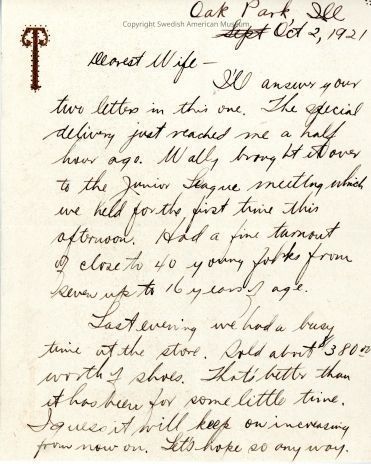 Oak Park, Ill
Copyright Swedish American Museum
Sept Oct 2, 1921
T
Dearest Wife —
I'll answer your
two letters in this one. The special
delivery just reached me a half
hour ago. Wally brought it over
to the Junior League meeting which
we held for the first time this
afternoon. Had a fine turnout
of close to 40 young folks from
seven up to 16 years of age.
Last evening we had a busy
time at the store. Sold about $380.00
worth of shoes. That's better than
it has been for some little time.
I guess it will keep on increasing
from now on. Let's hope so any way.